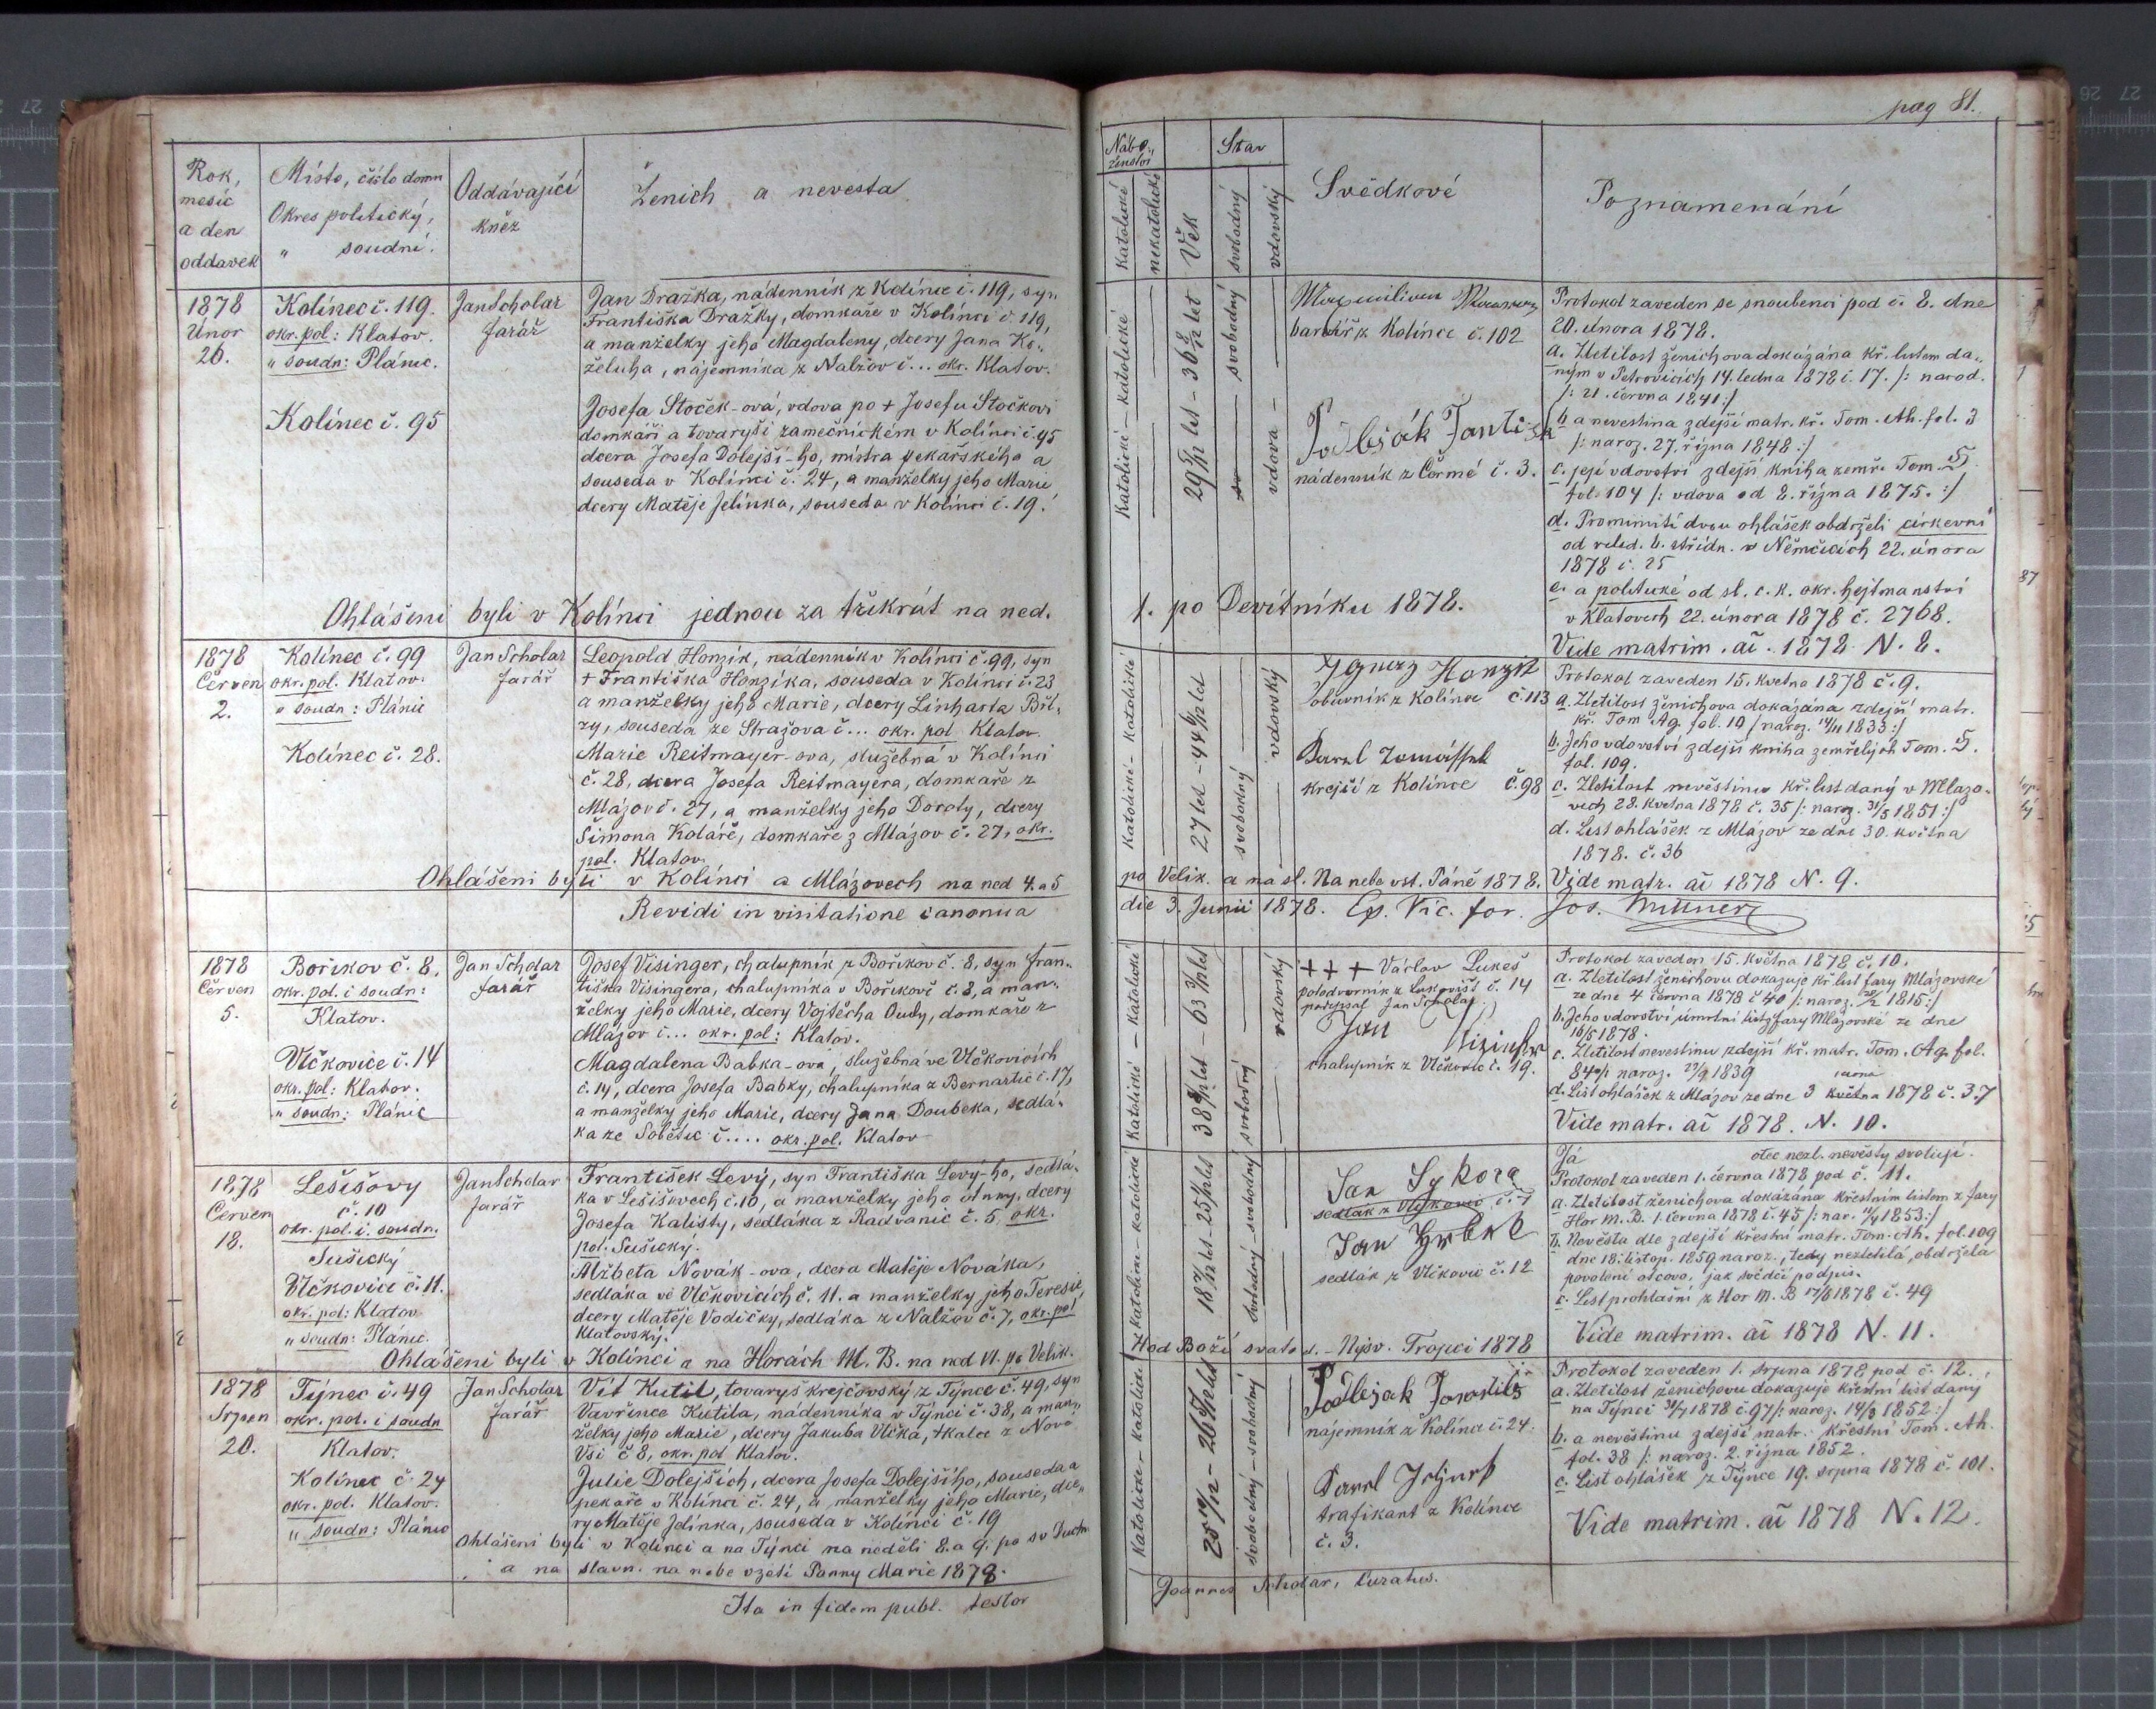 pag 81.
Rok,
mesíc
a den
oddavek
Místo, číslo domu
Okres politický,
" soudní.
Oddávající
kněz
Ženich a nevesta
Nábo-
ženství
katolické
nekatolické
Věk
Stav
svobodný
vdovský
Svědkové
Poznamenání
1878
Únor
26.
Kolínec č. 119.
okr. pol: Klatov.
" soudn: Plánic.
Kolínec č. 95
Jan Scholar
farář
Jan Dražka, nádenník z Kolínce č. 119, syn
Františka Dražky, domkaře v Kolínci č. 119,
a manželky jeho Magdaleny, dcery Jana Ko-
želuha, nájemníka z Nalžov č... okr. Klatov.
Josefa Stoček-ová, vdova po + Josefu Stočkovi
domkáři a tovaryši zamečnickém v Kolínci č. 95
dcera Josefa Dolejší-ho, mistra pekařského a
souseda v Kolínci č. 24, a manželky jeho Marie
dcery Matěje Jelínka, souseda v Kolínci č. 19.
Katolické - katolické
29 5/12 let - 36 8/12 let
svobodný
vdova -
barvíř z Kolínce č. 102
nádenník z Čermé č. 3.
Protokol zaveden se snoubenci pod č. 8. dne
20. února 1878.
a. Zletilost ženichova dokázána kř. listem da-
ným v Petrovicích 14. ledna 1878 č. 17. /: narod.
/: 21. června 1841:/
b a nevestina zdejší matr. kř. Tom. Ah. fol. 3
/: naroz. 27. října 1848 :/
c. její vdovství zdejší kniha zemř. Tom. 5.
fol. 104 /: vdova od 8. října 1875. :/
d. Prominutí dvou ohlášek obdrželi církevní
od veled. b. střídn. v Němčicích 22. února
1878 č. 25
e. a politické od sl. c. k. okr. hejtmanství
v Klatovech 22. února 1878 č. 2768.
Vide matrim. ai. 1878 N. 8.
Ohlášeni byli v Kolínci jednou za třikrát na ned. 1. po Devítníku 1878.
1878
Červen
2.
Kolínec č. 99
okr. pol. Klatov.
" soudn: Plánic
Kolínec č. 28.
Jan Scholar
farář
Leopold Honzík, nádenník v Kolínci č. 99, syn
+ Františka Honzíka, souseda v Kolínci č. 23
a manželky jeho Marie, dcery Linharta Bíl-
zy, souseda ze Stražova č... okr. pol Klatov.
Marie Reitmayer-ova, služebná v Kolínci
č. 28, dcera Josefa Reitmayera, domkaře z
Mlázov č. 27, a manželky jeho Doroty, dcery
Šimona Koláře, domkaře z Mlázov č. 27, okr.
pol. Klatov.
Katolické - katolické
27 let - 44 6/12 let
svobodný
vdovský
Honzik
obuvník z Kolínce č. 113
Karel
krejší z Kolínce č. 98
Protokol zaveden 15. května 1878 č. 9.
a. Zletilost ženichova dokázána zdejší matr.
kř. Tom. Ag. fol. 19 /naroz. 14/11 1833:/
b. Jeho vdovství zdejší kniha zemřelých Tom. 5.
fol. 109.
c. Zletilost nevěstinu kř. list daný v Mlázo-
vech 28. května 1878 č. 35 /: naroz. 31/5 1851:/
d. List ohlášek z Mlázov ze dne 30. května
1878. č. 36
Vide matr. ai 1878 N. 9.
Ohlášeni byli v Kolínci a Mlázovech na ned 4. a 5 po Velik. a na sl. Na nebe vst. Páně 1878.
Revidi in visitatione canonica die 3. Junii 1878. Ep. Vic. for. Jos.
1878
Červen
5.
Bořikov č. 8,
okr. pol. i soudn:
Klatov.
Vlčkovice č. 14
okr. pol: Klatov.
" soudn: Plánic
Jan Scholar
farář
Josef Visinger, chalupník z Bořikov č. 8, syn Fran-
tiška Visingera, chalupníka v Bořikově č. 8, a man-
želky jeho Marie, dcery Vojtěcha Oudy, domkaře z
Mlázov č... okr. pol: Klatov.
Magdalena Babka-ová, služebná ve Vlčkovicích
č. 14, dcera Josefa Babky, chalupníka z Bernartic č. 17,
a manželky jeho Marie, dcery Jana Doubeka, sedlá-
ka ze Sobětic č.... okr. pol. Klatov
Katolické - katolické
38 8/12 let - 63 3/12 let
svobodný
vdovský
+ + + Václav Lukeš
polodvorník z Lukovišť č. 14
podepsal Jan Scholar
Jan
chalupník z Vlčkovic č. 19.
Protokol zaveden 15. května 1878 č. 10.
a. Zletilost ženichovu dokazuje kř. list fary Mlázovské
ze dne 4 června 1878 č 40 /: naroz. 20/2 1815:/
b. Jeho vdovství úmrtní list fary Mlázovské ze dne
16/5 1878.
c. Zletilost nevestinu zdejší kř. matr. Tom. Ag. fol.
84 /: naroz. 29/9 1839
d. List ohlášek z Mlázov ze dne 3 května 1878 č. 37
Vide matr. ai 1878. N. 10.
1878
Červen
18.
Lešišovy
č. 10
okr. pol. i. soudn.
Sušický
Vlčkovice č. 11.
okr. pol: Klatov
" soudn: Plánic.
Jan Scholar
farář
František Levý, syn Františka Levý-ho, sedlá-
ka v Lešišovech č. 10, a manželky jeho Anny, dcery
Josefa Kalisty, sedláka z Radvanic č. 5, okr.
pol. Sušický.
Alžbeta Novák-ova, dcera Matěje Nováka,
sedláka ve Vlčkovicích č. 11. a manželky jeho Teresie,
dcery Matěje Vodičky, sedláka z Nalžov č. 7, okr. pol
Klatovský.
katolické - katolické
svobodný - svobodný
Jan Sykora
sedlák z Vlčkovic č. 7
Jan Hrbek
sedlák z Vlčkovic č. 12
Já otec nezl. nevěsty svoluji.
Protokol zaveden 1. června 1878 pod č. 11.
a. Zletilost ženichova dokázána křestním listem z fary
Hor M. B. 1. června 1878 č. 45 /: nar. 11/4 1853:/
b. Nevěsta dle zdejší křestní matr. Tom. Ah. fol. 109
dne 18. listop. 1859 naroz., tedy nezletilá, obdržela
povolení otcovo, jak svědčí podpis.
c. List prohlášní z Hor M. B 17/6 1878 č. 49
Vide matrim. ai 1878 N. 11.
Ohlášeni byli v Kolínci a na Horách M. B. na ned VI. po Velik. Hod Boží svatod. - Nejsv. Trojici 1878
1878
Srpen
20.
Týnec č. 49
okr. pol. i soudn
Klatov.
Kolínec č. 24
okr. pol. Klatov.
" soudn: Plánic
Jan Scholar
farář
Vít Kutil, tovaryš krejčovský z Týnce č. 49, syn
Vavřince Kutila, nádenníka v Týnci č. 38, a man-
želky jeho Marie, dcery Jakuba Vlčka, tkalce z Nové
Vsi č 8, okr. pol Klatov.
Julie Dolejších, dcera Josefa Dolejšího, souseda a
pekaře v Kolínci č. 24, a manželky jeho Marie, dce-
ry Matěje Jelínka, souseda v Kolínci č. 19
Katolické - katolické
svobodný - svobodný
nájemník z Kolínce č. 24.
Karel
trafikant z Kolínce
č. 3.
Protokol zaveden 1. srpna 1878 pod č. 12.
a. Zletilost ženichovu dokazuje křestní list daný
na Týnci 31/7 1878 č. 97 /: naroz. 14/3 1852:/
b. a nevěstinu zdejší matr. křestní Tom. Ah.
fol. 38 /: naroz. 2. října 1852.
c. List ohlášek z Týnce 19. srpna 1878 č. 101.
Vide matrim. ai 1878 N. 12.
Ohlášeni byli v Kolínci a na Týnci na neděli 8. a 9. po sv Duchu
a na slavn. na nebe vzetí Panny Marie 1878.
Ita in fidem publ. testor Joannes Scholar, Curatus.